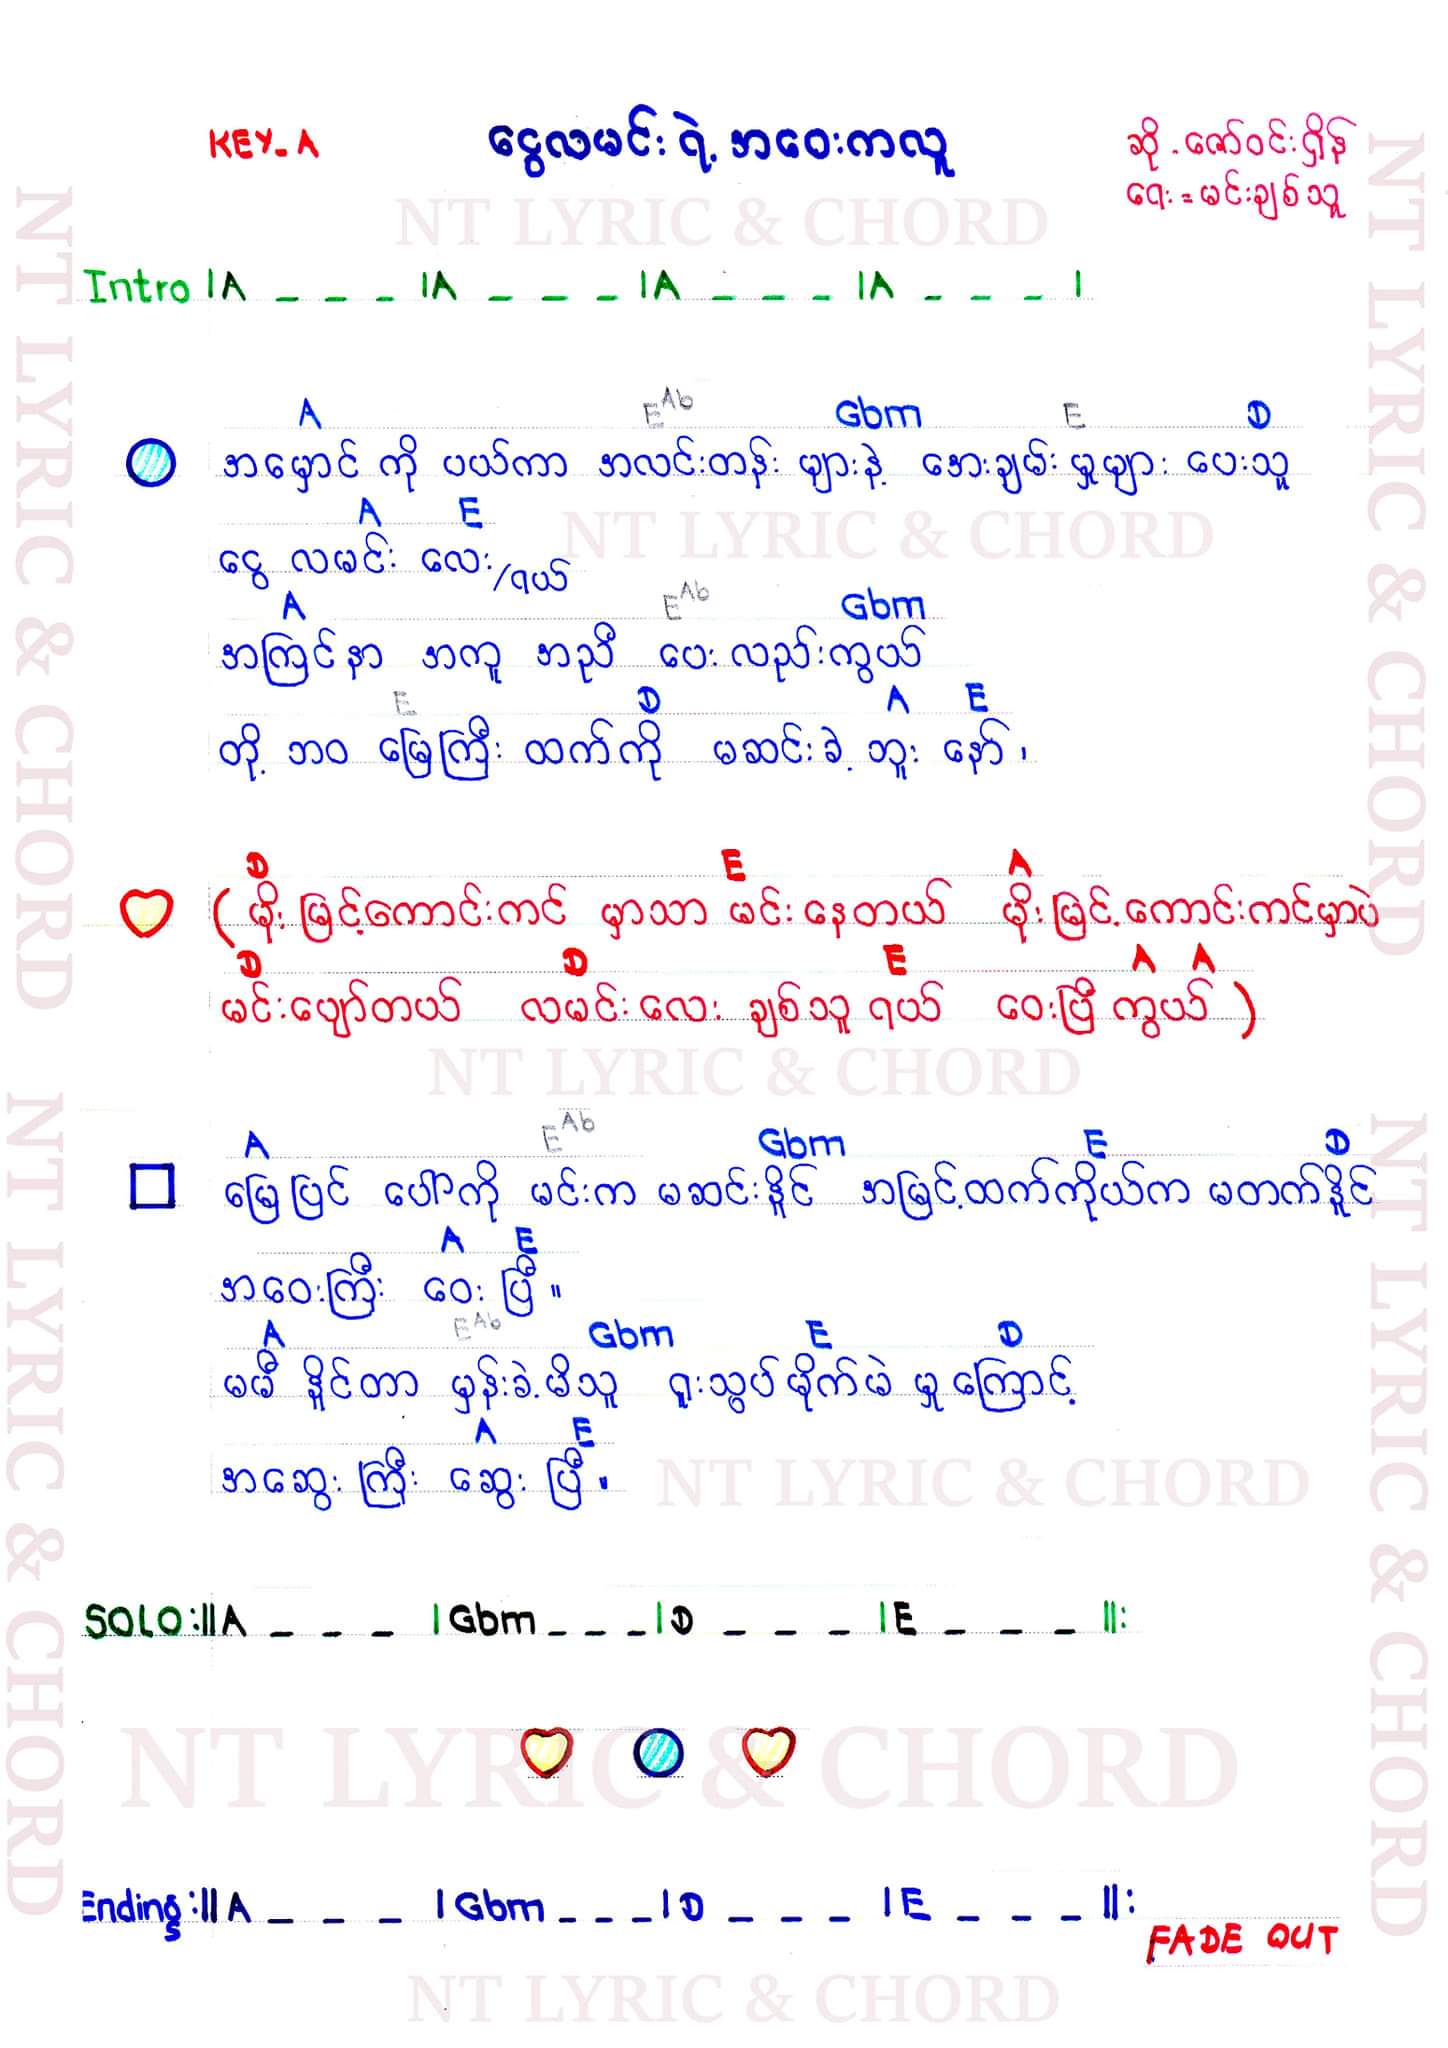 KEY-A
ငွေလမင်းရဲ့အဝေးကလူ
ဆို - ဇော်ဝင်းရှိန်
ရေး = မင်းချစ်သူ
NT LYRIC & CHORD
Intro |A _ _ _ |A _ _ _ |A _ _ _ |A _ _ _ |
A E Ab Gbm E D
အမှောင် ကို ပယ်ကာ အလင်းတန်း များနဲ့ အေးချမ်း မှုများ ပေးသူ
A E
NT LYRIC & CHORD
ငွေ လမင်း လေး /ရယ်
A E Ab Gbm
အကြင်နာ အကူ အညီ ပေး လည်းကွယ်
E D A E
တို့ ဘဝ မြေကြီး ထက်ကို မဆင်းခဲ့ ဘူး နော်၊
D E A
( မိုးမြင့်ကောင်းကင် မှာသာ မင်းနေတယ် မိုးမြင့်ကောင်းကင်မှာပဲ
D D E A A
မင်းပျော်တယ် လမင်းလေး ချစ်သူရယ် ဝေးပြီကွယ် )
NT LYRIC & CHORD
A E Ab Gbm E D
မြေပြင် ပေါ်ကို မင်းက မဆင်းနိူင် အမြင့်ထက်ကိုယ်က မတက်နိူင်
A E
အဝေးကြီး ဝေး ပြီ။
A E Ab Gbm E D
မမီ နိူင်တာ မှန်းခဲ့မိသူ ရူးသွပ်မိုက်မဲ မှုကြောင့်
A E
အဆွေးကြီး ဆွေး ပြီ။
NT LYRIC & CHORD
SOLO :||A _ _ _ |Gbm _ _ _ |D _ _ _ |E _ _ _ ||:
NT LYRIC & CHORD
Ending :||A _ _ _ |Gbm _ _ _ |D _ _ _ |E _ _ _ ||:
FADE OUT
NT LYRIC & CHORD
NT LYRIC & CHORD
NT LYRIC & CHORD
NT LYRIC & CHORD
NT LYRIC & CHORD